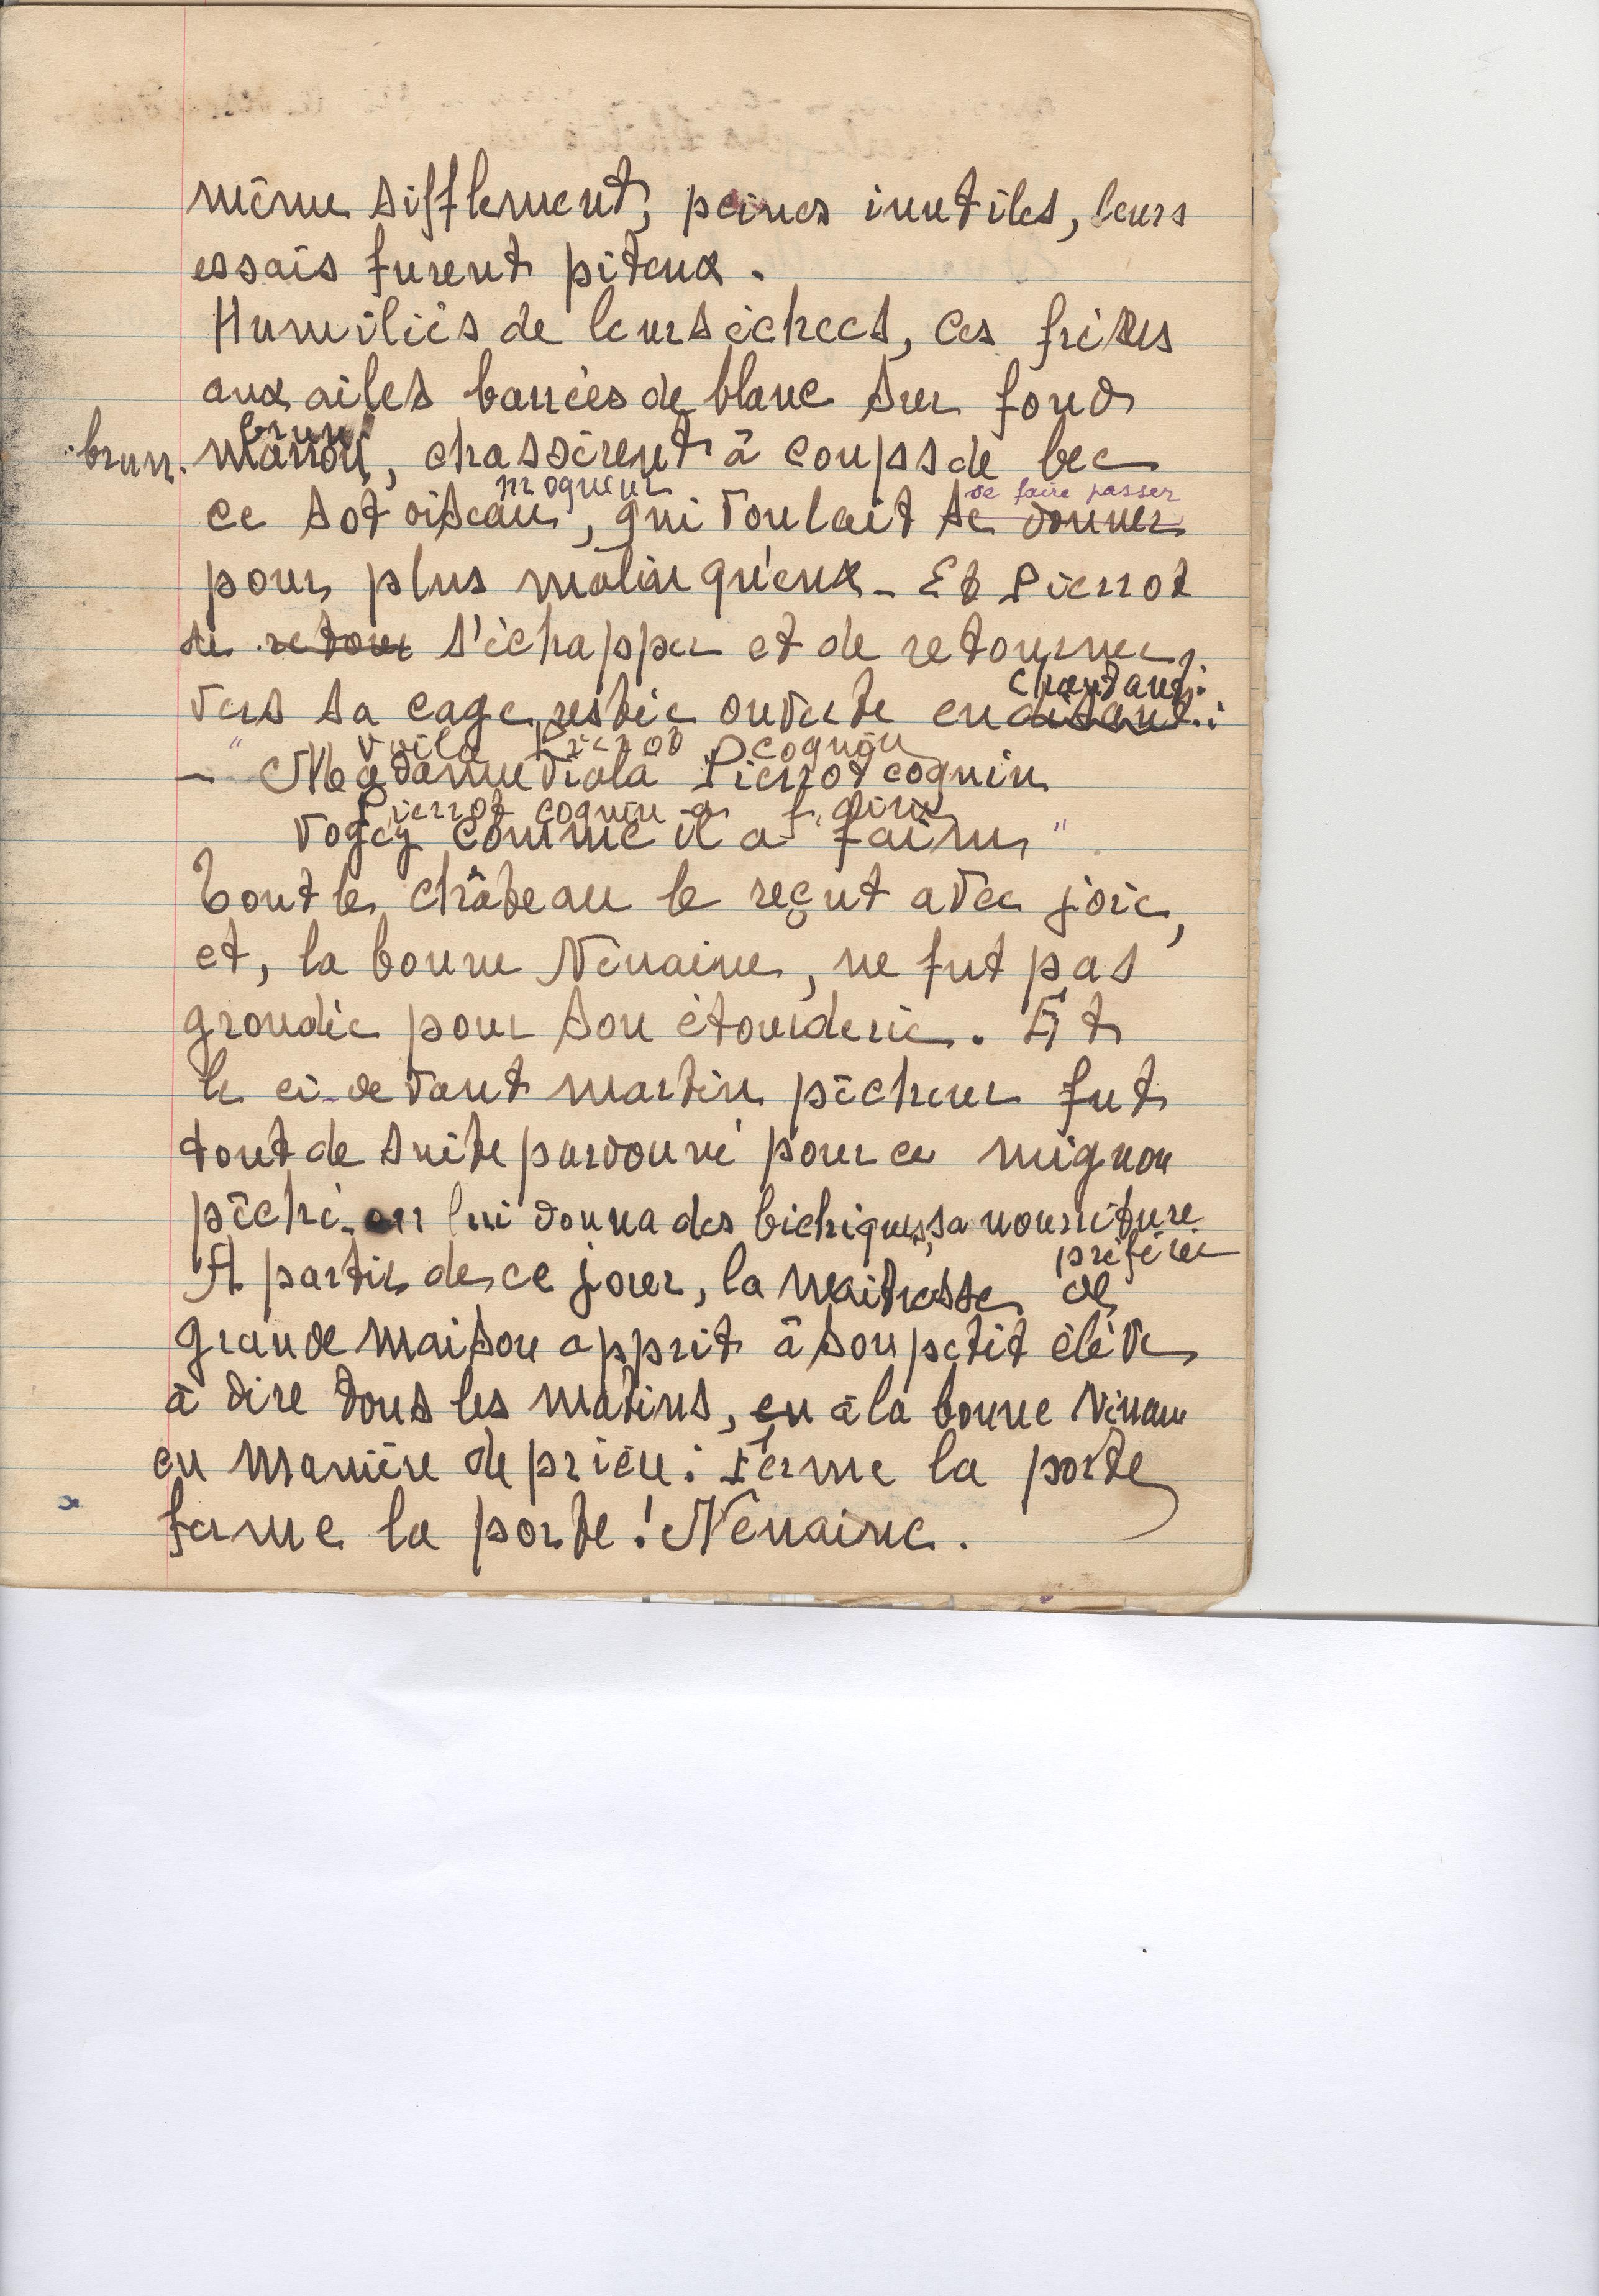 même sifflement, peines inutiles, leurs
essais furent piteux.
Humiliés de leurs échecs, ces frères
aux ailes barrées de blanc sur fond
brun
brun. marron, chassèrent à coups de bec
moqueur se faire passer
ce sot oiseau, qui voulait se donner
pour plus malin qu'eux - Et Pierrot
de retour s'échapper et de retourner
chantant :
vers sa cage, restée ouverte en disant :
voilà Pierrot coquin
" - Madame viola Pierrot coquin
Pierrot coquin a faim
Voyez comme il a faim "
Tout le château le reçut avec joie,
et, la bonne Nénaine, ne fut pas
grondée pour son étourderie. Et
le ci-devant martin pêcheur fut
tout de suite pardonné pour ce mignon
pêché - on lui donna des bichiques, sa nourriture
préférée
A partir de ce jour, la maitresse de
grande maison apprit à son petit élève
à dire tous les matins, en à la bonne Nénaine
en manière de prière : Ferme la porte
ferme la porte ! Nénaine.